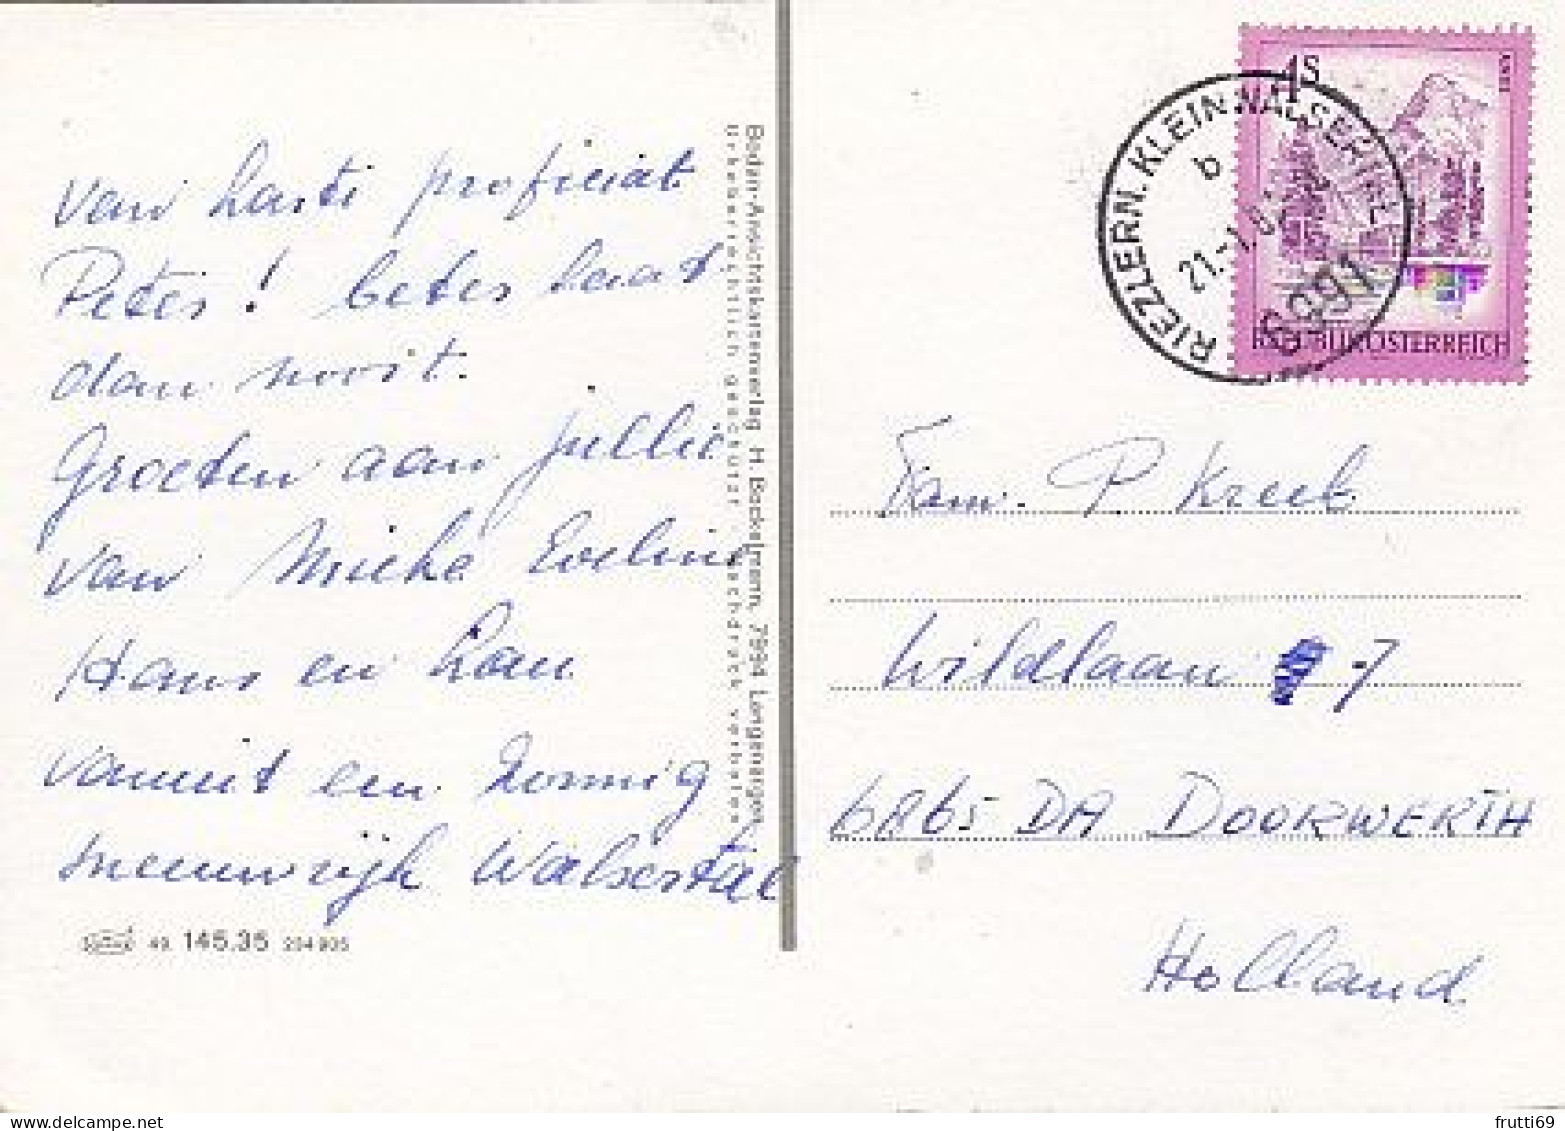 van harte proficiat
Peter! beter laat
dan nooit.
Groeten aan jullie
van Mieke Eveline
Hans en Lau
vanuit een zonnig
sneeuwrijk Walsertal
49 145.35 294 905
Boden-Ansichtskartenverlag H. Bockelmann, 7994 Langenargen
Urheberrechtlich geschützt · Nachdruck verboten
4S
REPUBLIK ÖSTERREICH
RIEZLERN. KLEINWALSERTAL
b
21.-1.8
6991
Fam. P. Kreek
Wildlaan 7
6865 DA DOORWERTH
Holland
frutti69